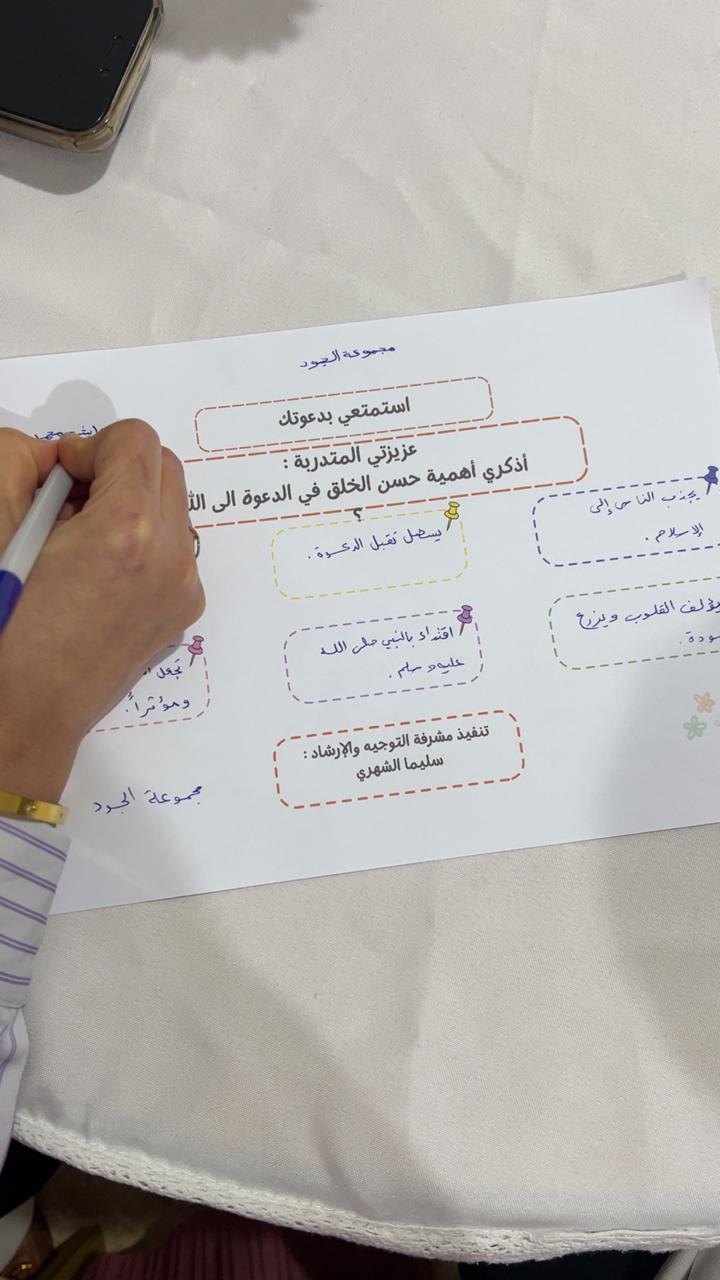 مجموعة الجود
استمتعي بدعوتك
عزيزتي المتدربة :
أذكري أهمية حسن الخلق في الدعوة الى
؟
يجذب الناس إلى
الإسلام .
يسهل تقبل الدعوة .
يؤلف القلوب ويزرع
اقتداء بالنبي صلى الله
عليه وسلم .
تجعل
ومؤثراً .
تنفيذ مشرفة التوجيه والإرشاد :
سليما الشهري
مجموعة الجود